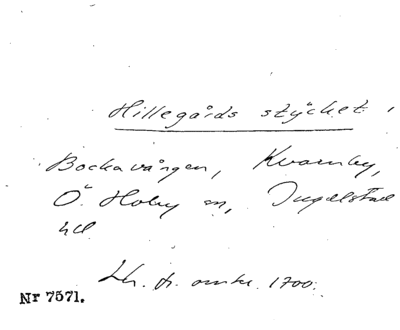 Hillegårds stycket,
Bockavången, Kvarnby,
Ö. Hoby sn, Ingelstad
hd
omkr. 1700.
Nr 7571.